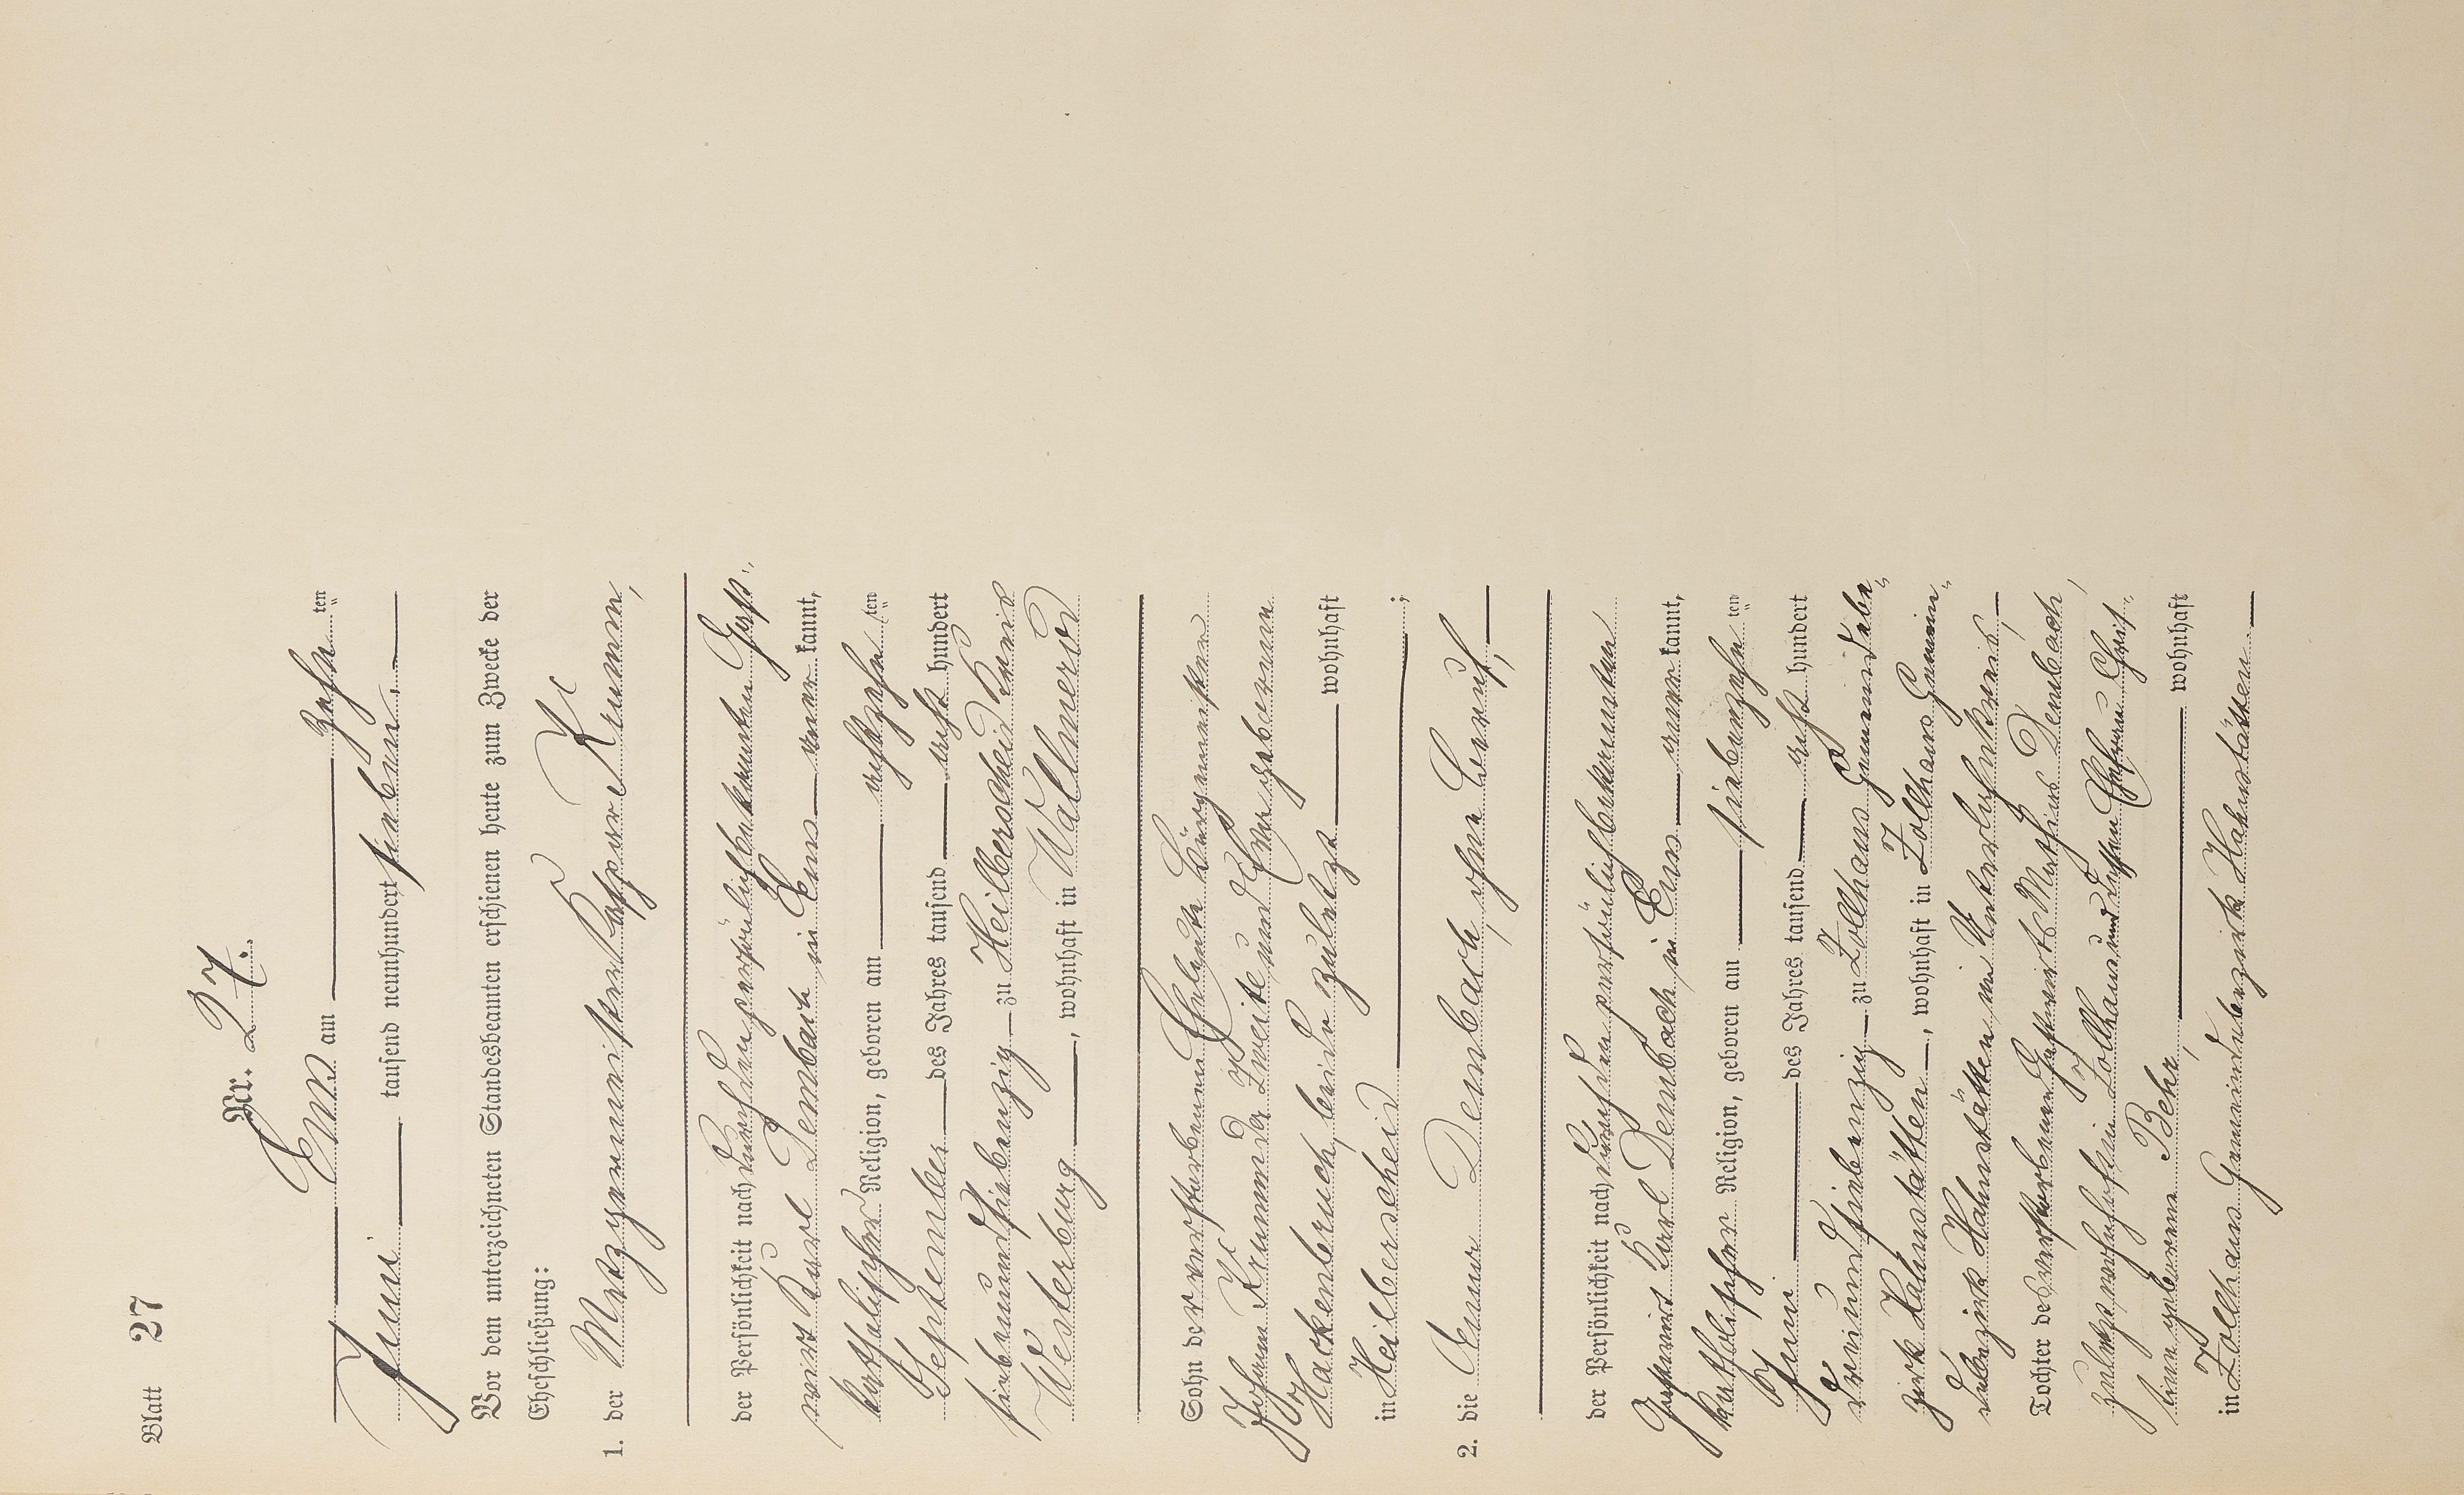 Blatt 27
Nr. 27.
Ems am zehn ten
Juni tausend neunhundert sieben.
Vor dem unterzeichneten Standesbeamten erschienen heute zum Zwecke der
Eheschließung:
1. der Metzgermeister Kaspar Krumm,
der Persönlichkeit nach durch den persönlich bekannten Gast-
wirt Karl Dembach in Ems aner kannt,
katholischer Religion, geboren am achtzehn ten
September des Jahres tausend acht hundert
siebenundsiebenzig zu Heilberscheid Kreis
Westerburg, wohnhaft in Wallmerod
Sohn der verstorbenen Eheleute Bürgermeister
Johann Krumm der Zweite und Eva geborenen
Hackenbruch, beide zuletzt wohnhaft
in Heilberscheid;
2. die Anna Dembach, ohne Beruf,
der Persönlichkeit nach durch den persönlich bekannten
Gastwirt Karl Dembach in Ems aner kannt,
katholischer Religion, geboren am siebenzehn ten
Juni des Jahres tausend acht hundert
dreiundsiebenzig zu Zollhaus Gemeindebe-
zirk Hahnstätten, wohnhaft in Zollhaus Gemein-
debezirk Hahnstätten im Unterlahnkreis,
Tochter des verstorbenen Gastwirts Mathias Dembach,
zuletzt wohnhaft in Zollhaus und dessen Ehefrau Chris-
tine geborene Behr, wohnhaft
in Zollhaus Gemeindebezirk Hahnstätten.